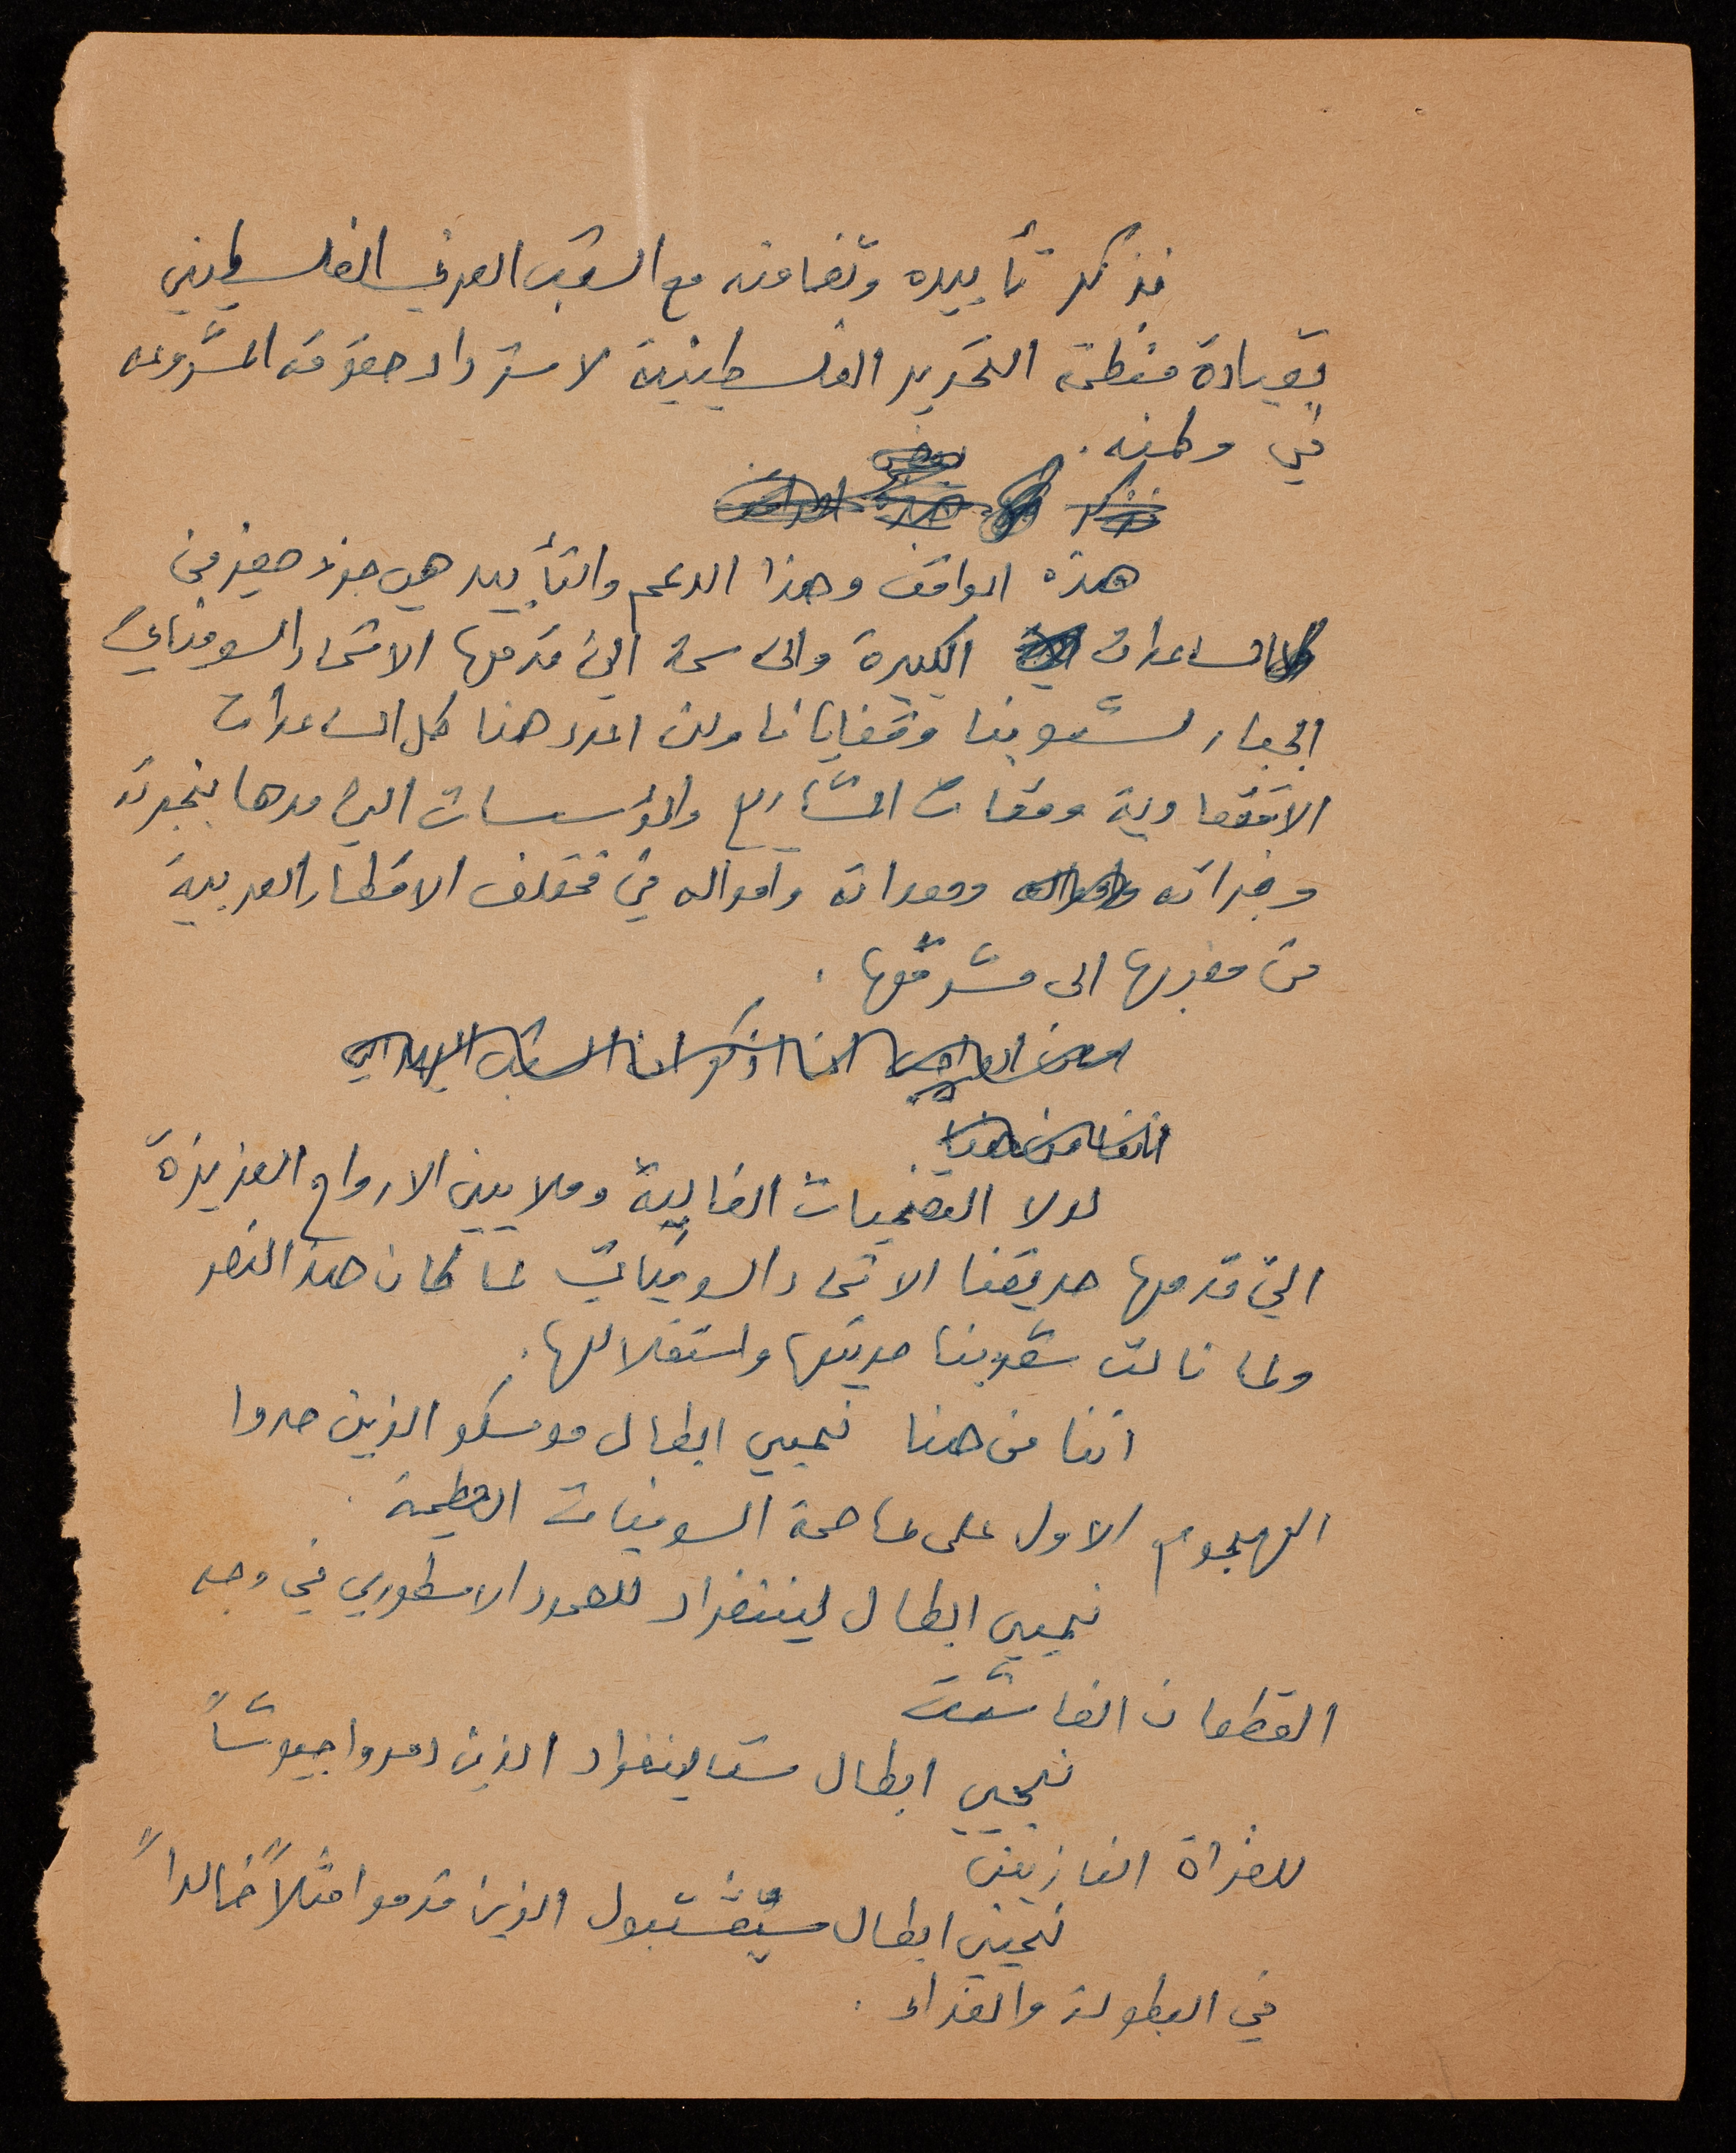 نذكر تأييده وتضامنه مع الشعب العربي الفلسطيني
بقيادة منظمة التحرير الفلسطينية لاسترداد حقوقه المشروعه
في وطنه .
نذكر
هذه المواقف وهذا الدعم والتأييد هي جزء صغير من
المساعدات الكبيرة والحاسمة التي قدمها الاتحاد السوفياتي
الجبار لشعوبنا وقضايانا ولن اعدد هنا كل المساعدات
الاقتصادية ومئات المشاريع والمؤسسات التي مدها بنجدته
وخبراته ومعداته وامواله في مختلف الاقطار العربية
من مغربها الى مشرقها .
لولا التضحيات الغالية وملايين الارواح العزيزة
التي قدمها صديقنا الاتحاد السوفياتي لما كان هذا النصر
ولما نالت شعوبنا حريتها واستقلالها .
اننا من هنا نحيي ابطال موسكو الذين صدوا
الهجوم الاول على عاصمة السوفيات العظيمة .
نحيي ابطال لينينغراد للصمود الاسطوري في وجه
القطعان الفاشية
نحيي ابطال ستالينغراد الذين دمروا جيوشاً
للغزاة النازيين
نحيي ابطال سيفستبول الذين قدموا مثلاً خالداً
في البطولة والفداء .